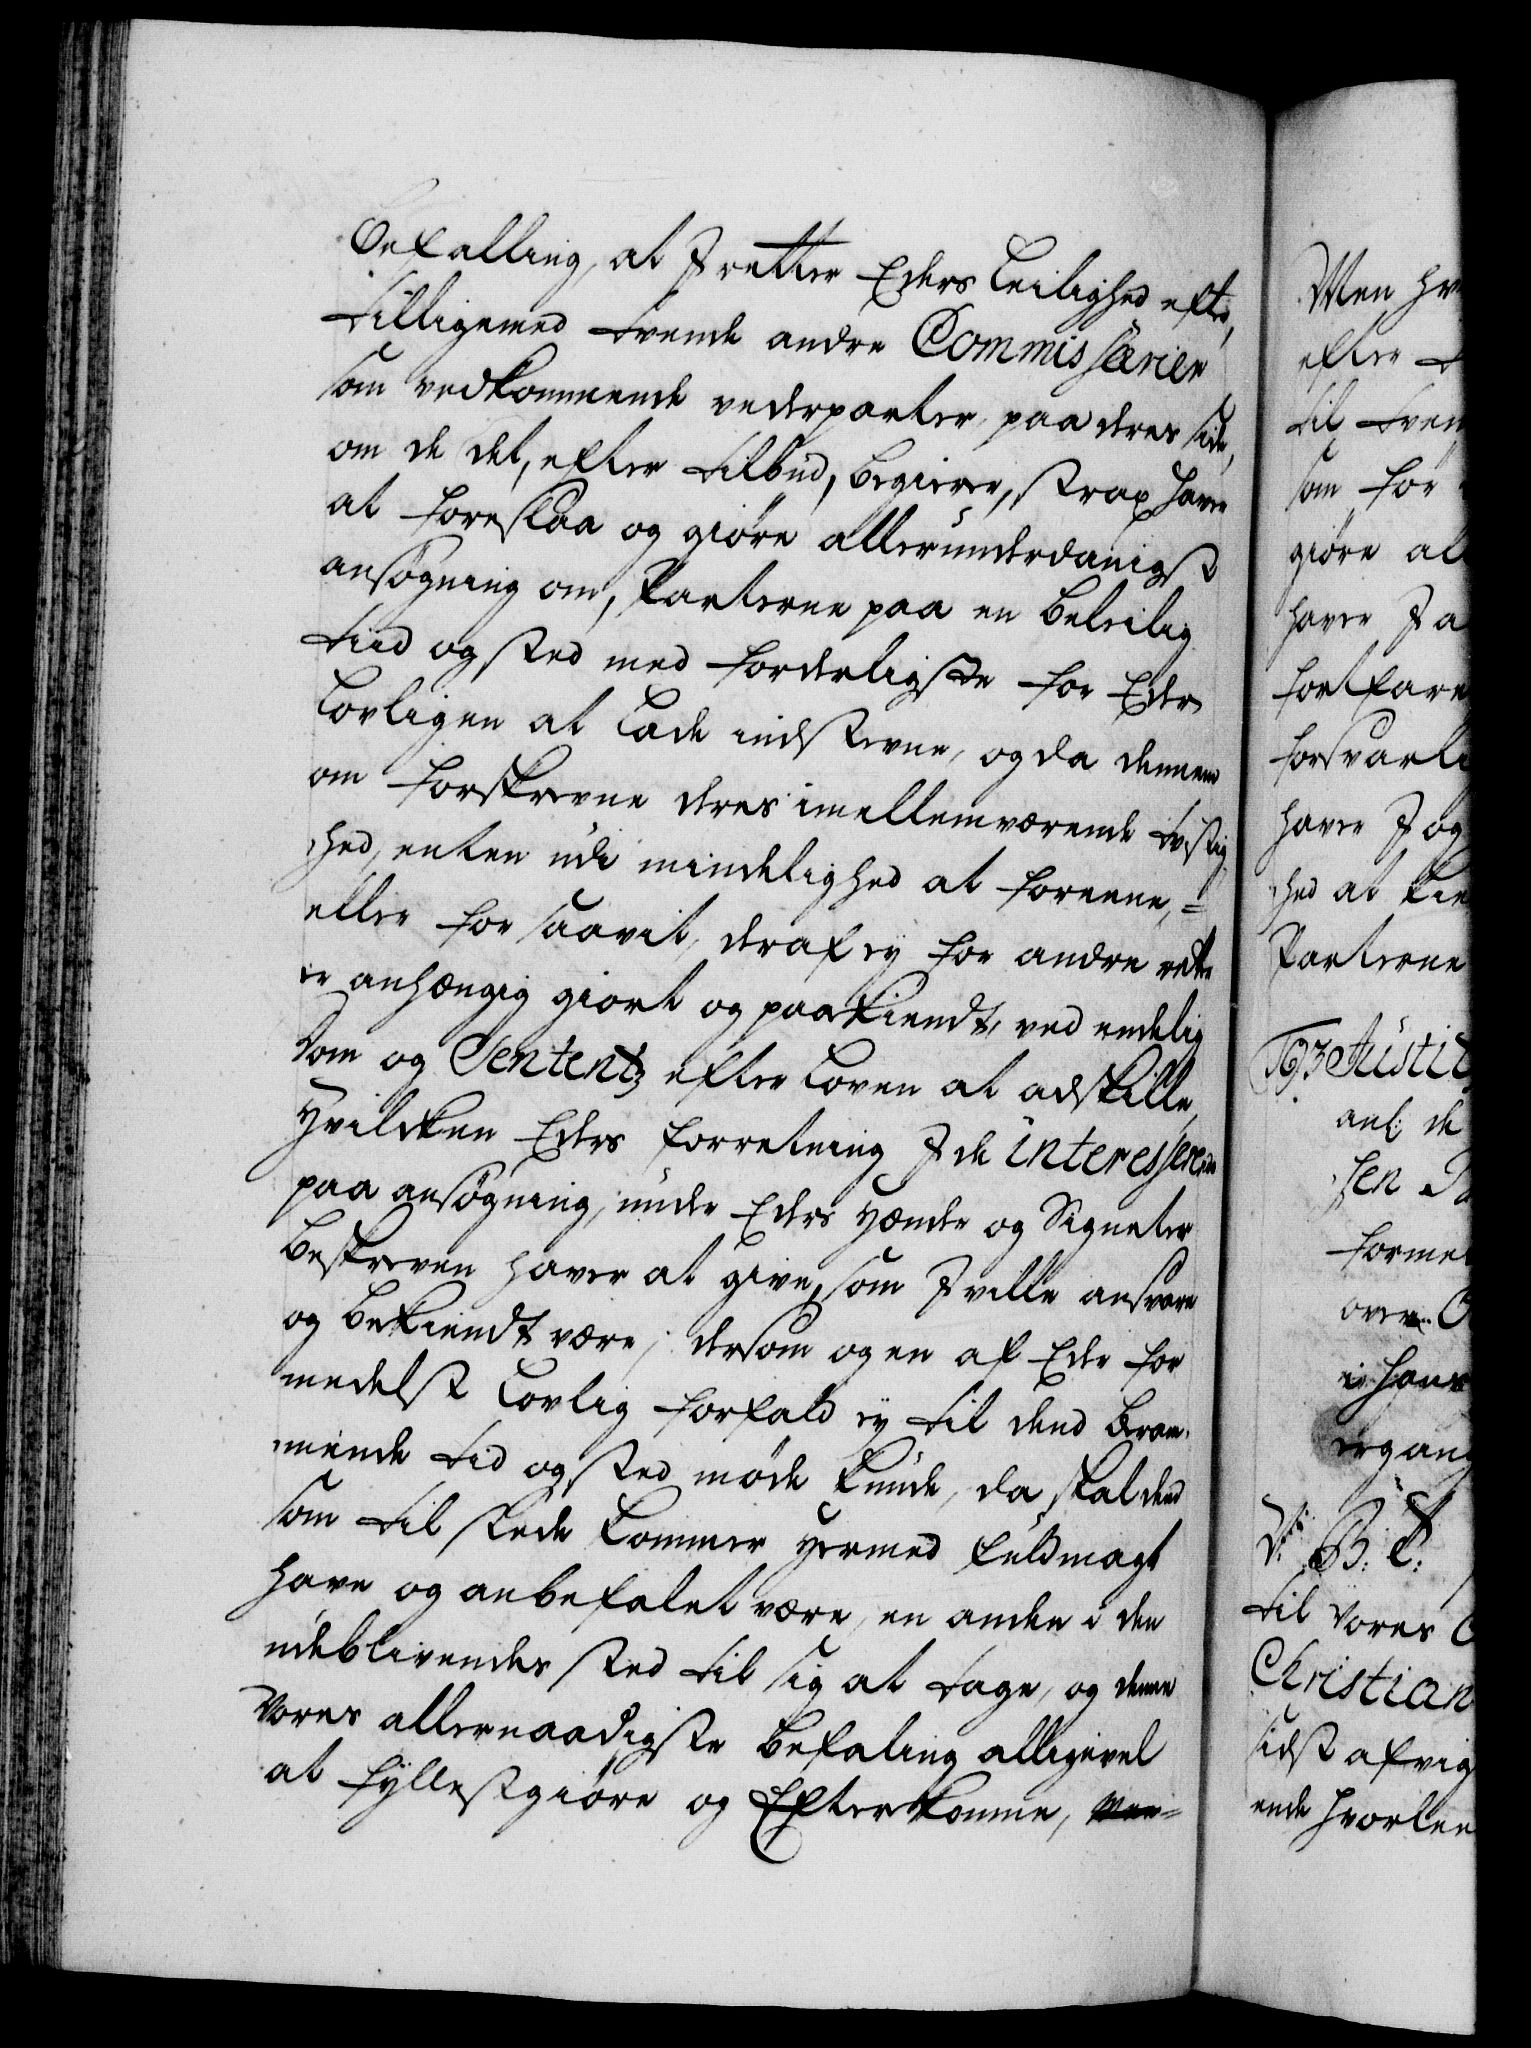 Befalling, at I retter Eders Leilighed efter,
tilligemed tvende andre Commissarier
som vedkommende vederparter, paa deres side,
om de det, efter tilbud, begierer, strax haver
at foreslaa og giøre allerunderdanigst
ansøgning om, Parterne paa en beleilig
tiid og sted med forderligste for Eder
Lovligen at lade indstevne, og da dennem
om forskrevne deres imellemværende tvistig-
hed, enten udi mindelighed at foreene,=
eller for saavit, deraf ey for andre rette
er anhængig giort og paakiendt, ved endelig
Dom og Sententz efter Loven at adskille,
Hvilcken Eders forretning I de interesserede
paa ansøgning, under Eders Hænder og Signeter
beskreven haver at give, som I ville ansvare
og bekiendt være; dersom og en af Eder for
medelst Lovlig forfald ey til dend beram-
mende tid og sted møde kunde, da skal dend
som til stede kommer hermed fuldmagt
have og anbefalet være, en anden i den
udeblivendes sted til sig at tage, og denne
Vores allernaadigste befaling alligevel
at fyllestgiøre og Efterkomme,
Men hv
efter
til tven
som for
giøre al
haver I a
fortfare
forsvarli
haver I og
hed at
Parterne
193 Justit
anl: de
sen
forme
over
i hans
ergang
V: B: T:
til Vores
Christian
sidst afvig
ende hvorlee